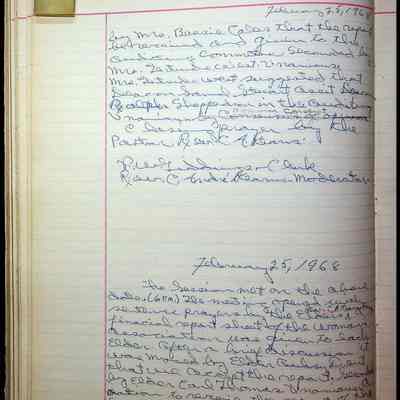 February 25, 1968
by Mrs. Bessie Coles that the report
be received and given to the
Auditing Committee Seconded by
Mrs. Gertrude West. Unanimous
Mrs. Gertrude West suggested that
Deacon Stewart assist Deacon
Shepperson in the Auditing
Unanimously
Closing Prayer by the
Pastor Rev. C. A. Kearns
Giddings - Clerk
Rev. C. André Kearns Moderator
February 25, 1968
The Session met on the above
date. The meeting opened with
sentence prayers by the Elders. A
financial report sheet of the Woman's
Association was given to each
Elder. After a brief discussion it
was moved by Elder
that we accept the report. Seconded
by Elder Carl Thomas. Unanimous